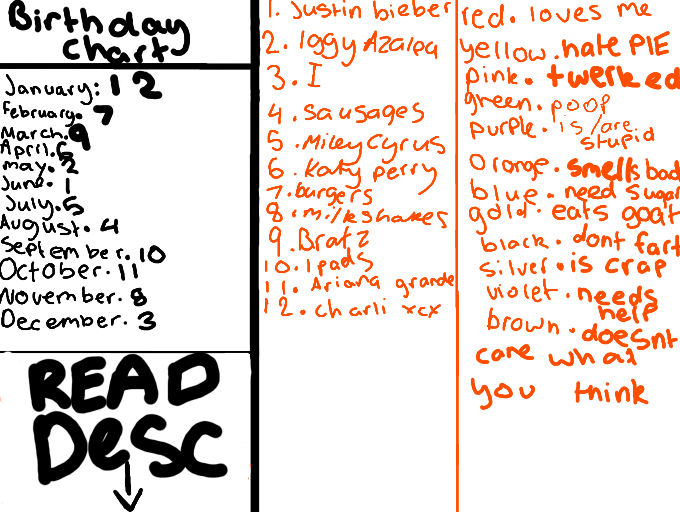 Birthday
chart
January: 12
February. 7
March. 9
April. 6
may. 2
June. 1
July. 5
August. 4
September. 10
October. 11
November. 8
December. 3
READ
DeSC
1. Justin bieber
2. Iggy Azalea
3. I
4. sausages
5. Miley Cyrus
6. Katy perry
7. burgers
8. milkshakes
9. Bratz
10. Ipads
11. Ariana grande
12. charli xcx
red. loves me
yellow. hate PIE
pink. twerked
green. poop
purple. is/are
stupid
Orange. smells bad
blue. need sugar
gold. eats goat
black. dont fart
silver. is crap
violet. needs
help
brown. doesnt
care what
you think